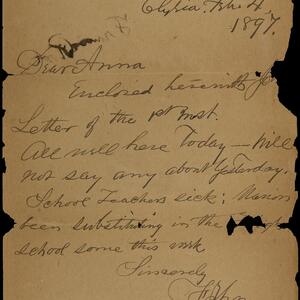 Elyria,
1897.
Dear Anna
Enclosed herewith
Letter of the 1st inst.
All well here Today — Will
not say any about Yesterday.
School Teachers sick; Marion
been substituting in the
school some this week
Sincerely